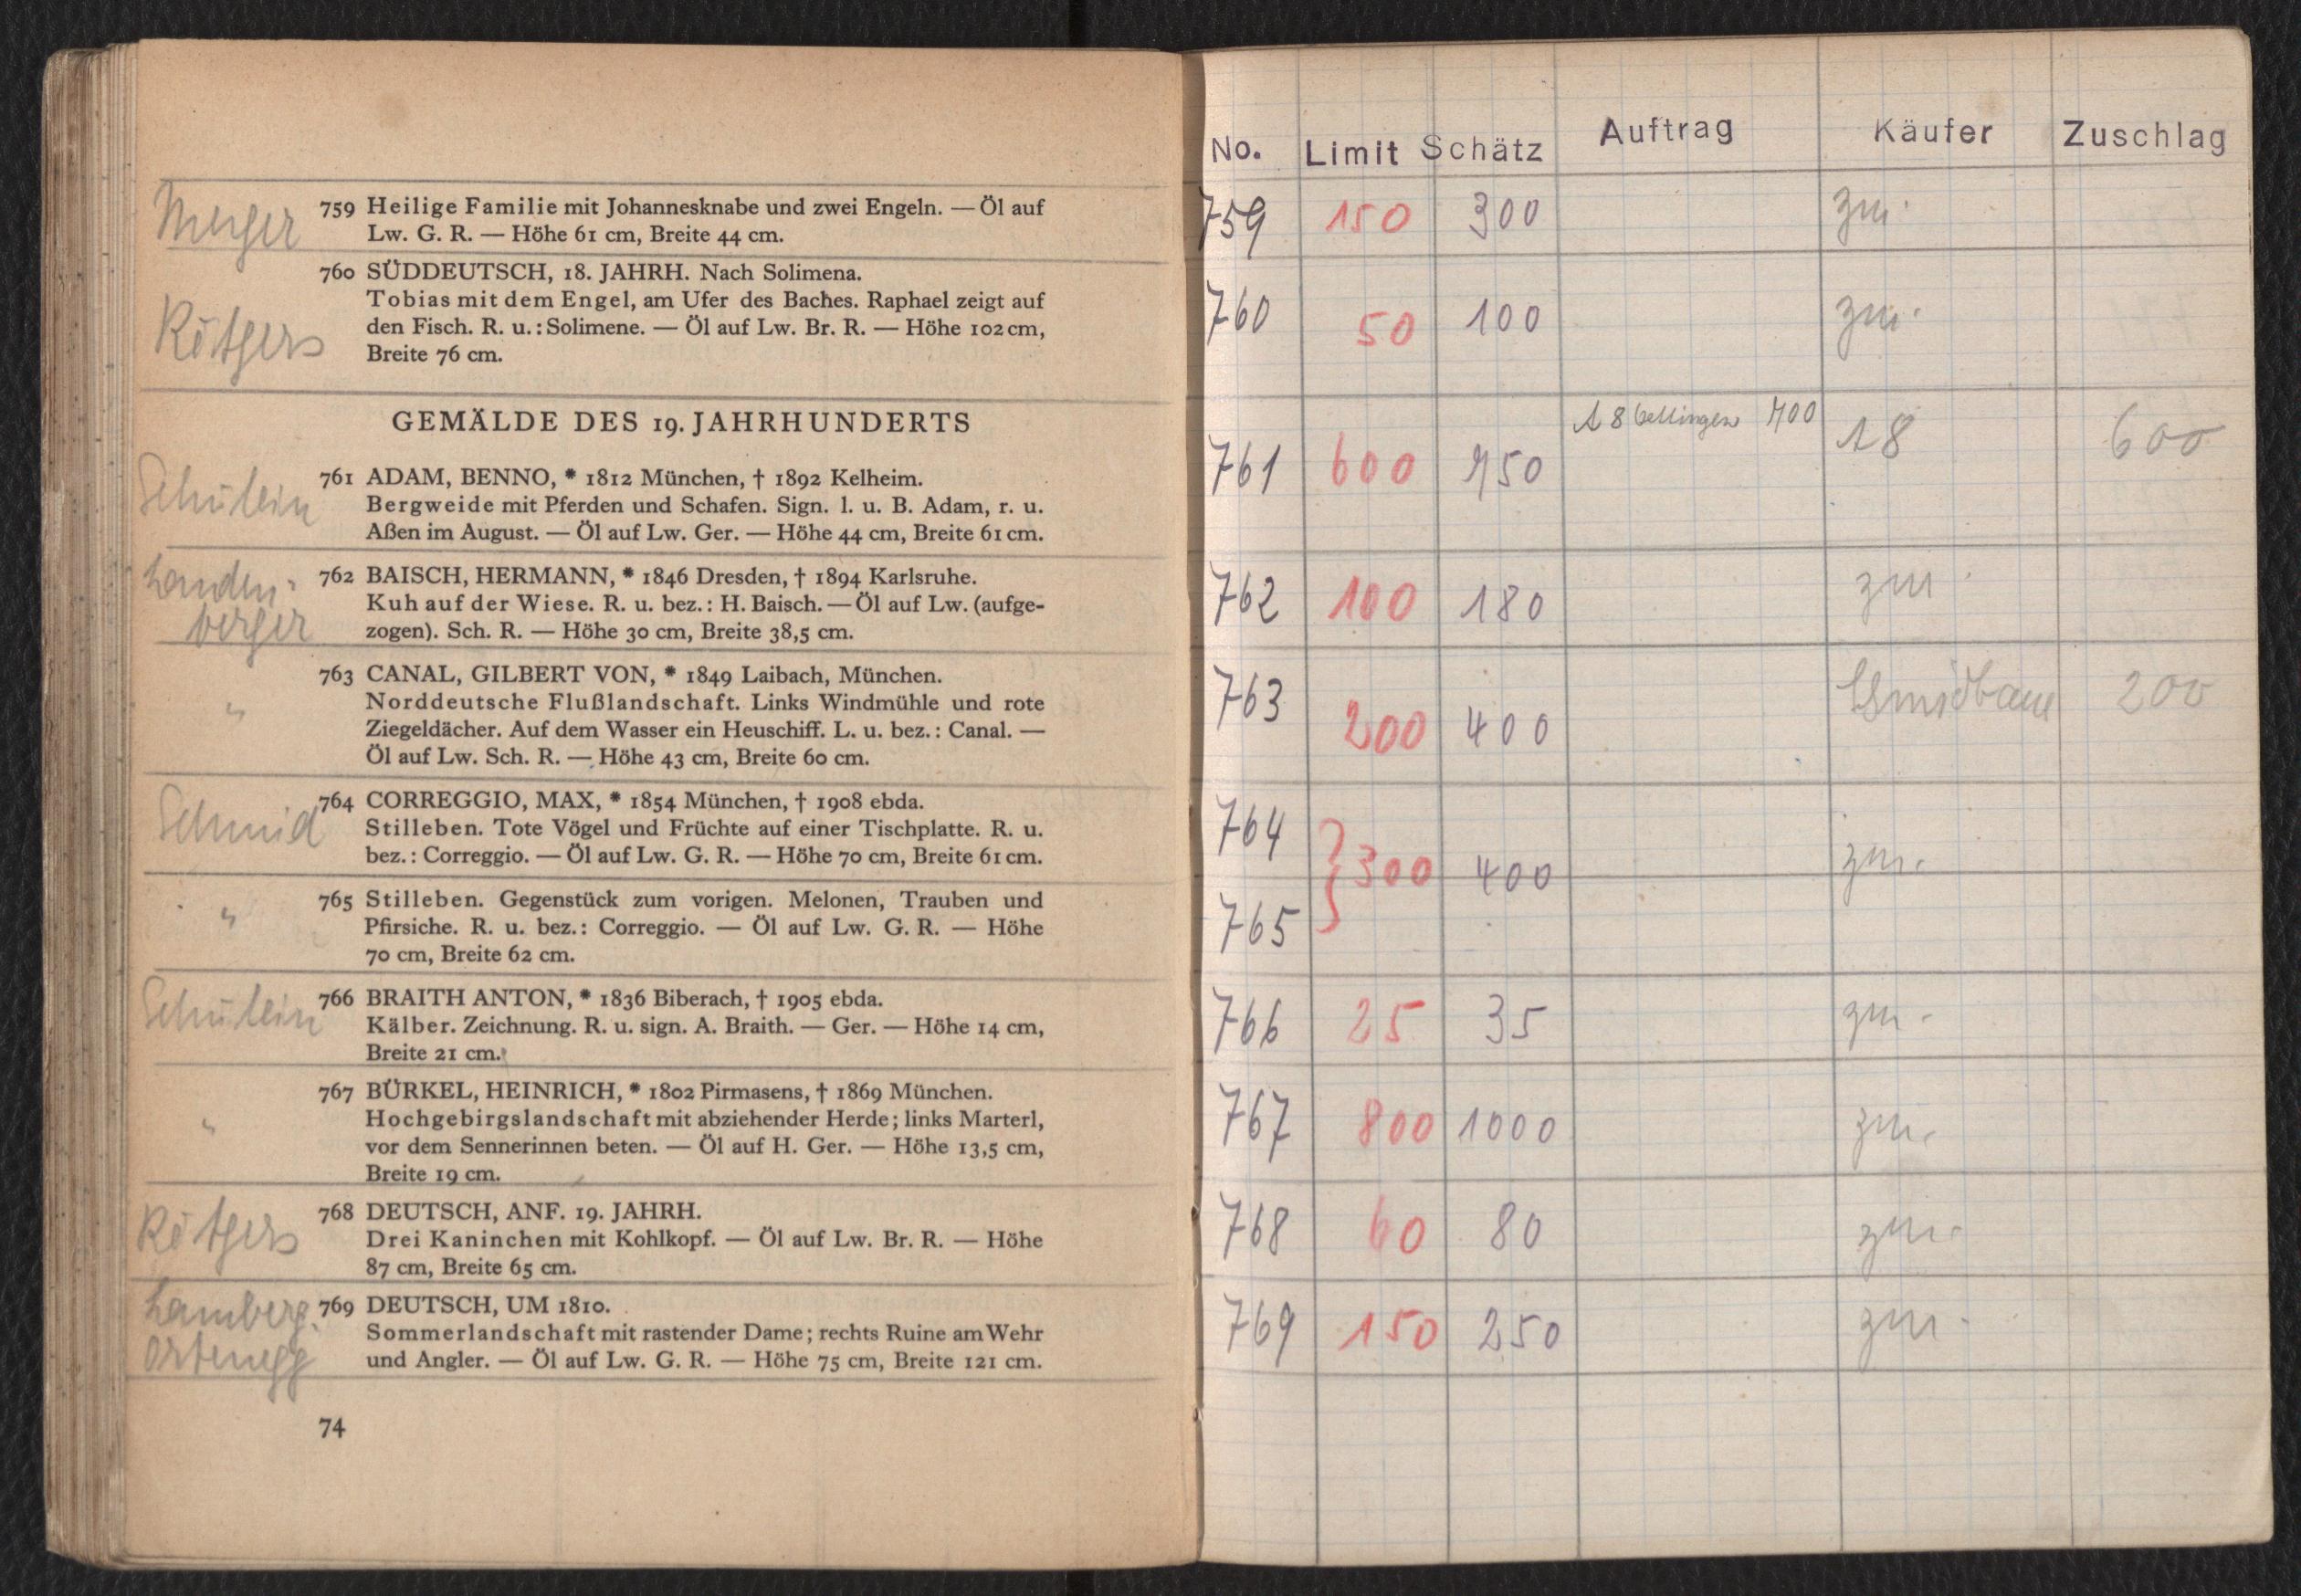 Menger
759 Heilige Familie mit Johannesknabe und zwei Engeln. — Öl auf
Lw. G. R. — Höhe 61 cm, Breite 44 cm.
760 SÜDDEUTSCH, 18. JAHRH. Nach Solimena.
Tobias mit dem Engel, am Ufer des Baches. Raphael zeigt auf
den Fisch. R. u.: Solimene. — Öl auf Lw. Br. R. — Höhe 102 cm,
Breite 76 cm.
Rötgers
GEMÄLDE DES 19. JAHRHUNDERTS
Schülein
761 ADAM, BENNO, * 1812 München, † 1892 Kelheim.
Bergweide mit Pferden und Schafen. Sign. l. u. B. Adam, r. u.
Aßen im August. — Öl auf Lw. Ger. — Höhe 44 cm, Breite 61 cm.
Landen-
berger
762 BAISCH, HERMANN, * 1846 Dresden, † 1894 Karlsruhe.
Kuh auf der Wiese. R. u. bez.: H. Baisch. — Öl auf Lw. (aufge-
zogen). Sch. R. — Höhe 30 cm, Breite 38,5 cm.
"
763 CANAL, GILBERT VON, * 1849 Laibach, München.
Norddeutsche Flußlandschaft. Links Windmühle und rote
Ziegeldächer. Auf dem Wasser ein Heuschiff. L. u. bez.: Canal. —
Öl auf Lw. Sch. R. — Höhe 43 cm, Breite 60 cm.
Schmid
764 CORREGGIO, MAX, * 1854 München, † 1908 ebda.
Stilleben. Tote Vögel und Früchte auf einer Tischplatte. R. u.
bez.: Correggio. — Öl auf Lw. G. R. — Höhe 70 cm, Breite 61 cm.
"
765 Stilleben. Gegenstück zum vorigen. Melonen, Trauben und
Pfirsiche. R. u. bez.: Correggio. — Öl auf Lw. G. R. — Höhe
70 cm, Breite 62 cm.
Schülein
766 BRAITH ANTON, * 1836 Biberach, † 1905 ebda.
Kälber. Zeichnung. R. u. sign. A. Braith. — Ger. — Höhe 14 cm,
Breite 21 cm.
"
767 BÜRKEL, HEINRICH, * 1802 Pirmasens, † 1869 München.
Hochgebirgslandschaft mit abziehender Herde; links Marterl,
vor dem Sennerinnen beten. — Öl auf H. Ger. — Höhe 13,5 cm,
Breite 19 cm.
Rötgers
768 DEUTSCH, ANF. 19. JAHRH.
Drei Kaninchen mit Kohlkopf. — Öl auf Lw. Br. R. — Höhe
87 cm, Breite 65 cm.
Lamberg.
Ortenegg
769 DEUTSCH, UM 1810.
Sommerlandschaft mit rastender Dame; rechts Ruine am Wehr
und Angler. — Öl auf Lw. G. R. — Höhe 75 cm, Breite 121 cm.
74
No. Limit Schätz Auftrag Käufer Zuschlag
759 150 300 zur.
760 50 100 zur.
761 600 750 18 bellingen 700 18 600
762 100 180 zur
763 200 400 200
764
} 300 400 zur.
765
766 25 35 zur.
767 800 1000 zur.
768 60 80 zur.
769 150 250 zur.